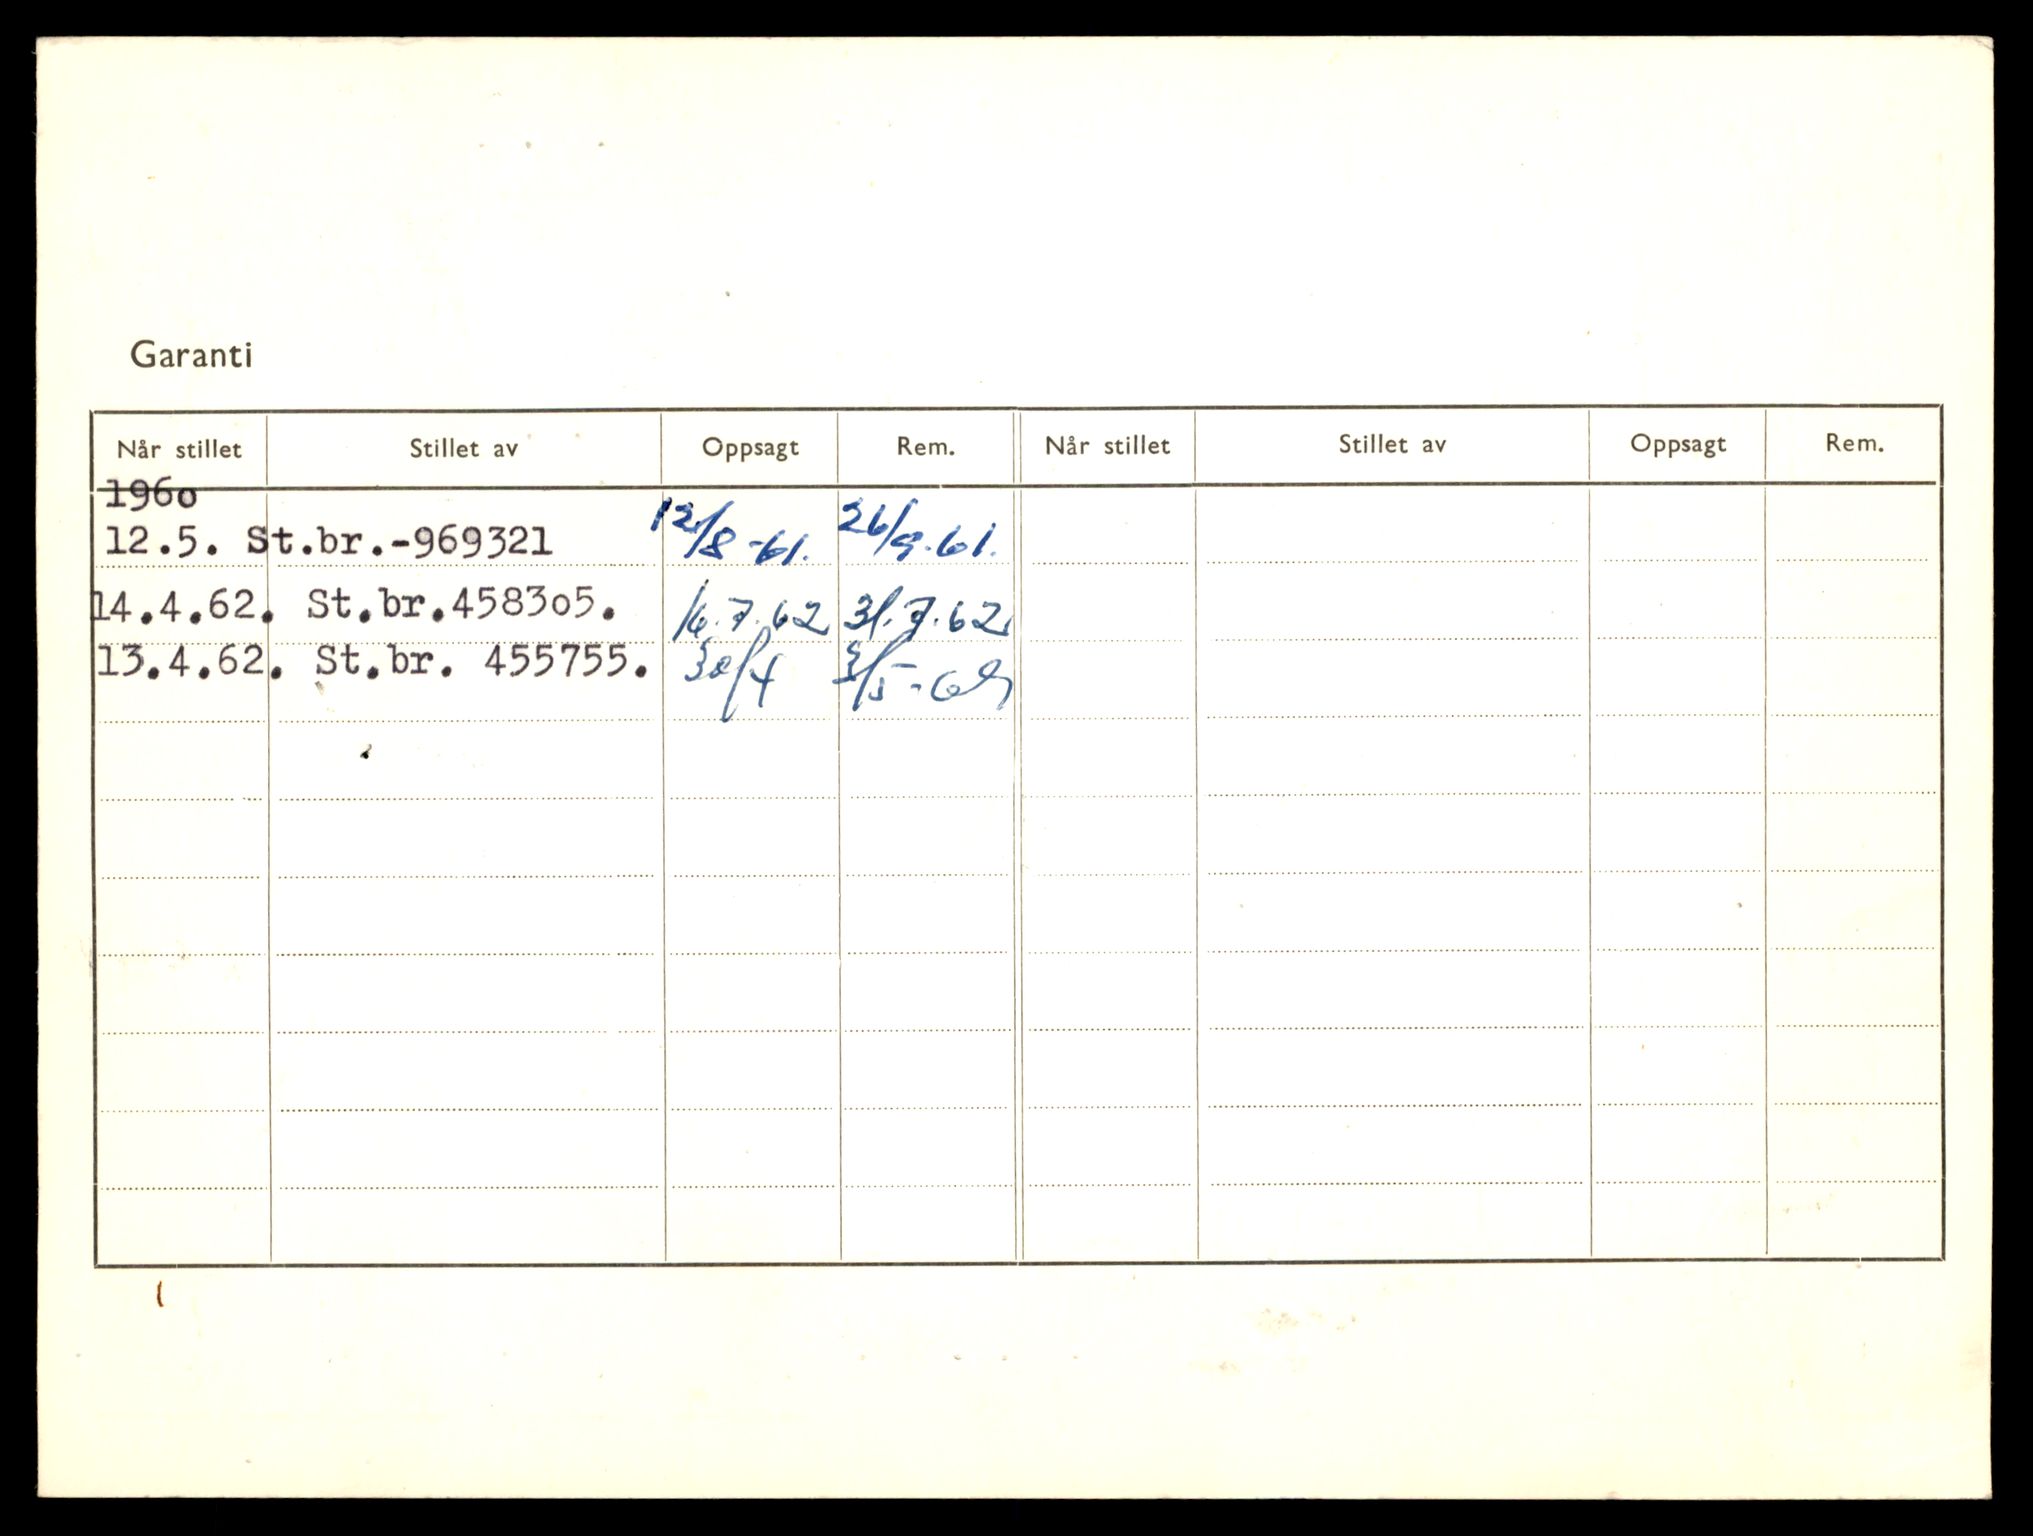 Garanti
Når stillet Stillet av Oppsagt Rem. Når stillet Stillet av Oppsagt Rem.
1960
12.5. St.br.-969321 12/8-61. 26/9.61.
14.4.62. St.br.458305. 16.7.62 31.7.62
13.4.62. St.br. 455755. 30/4 3/5-